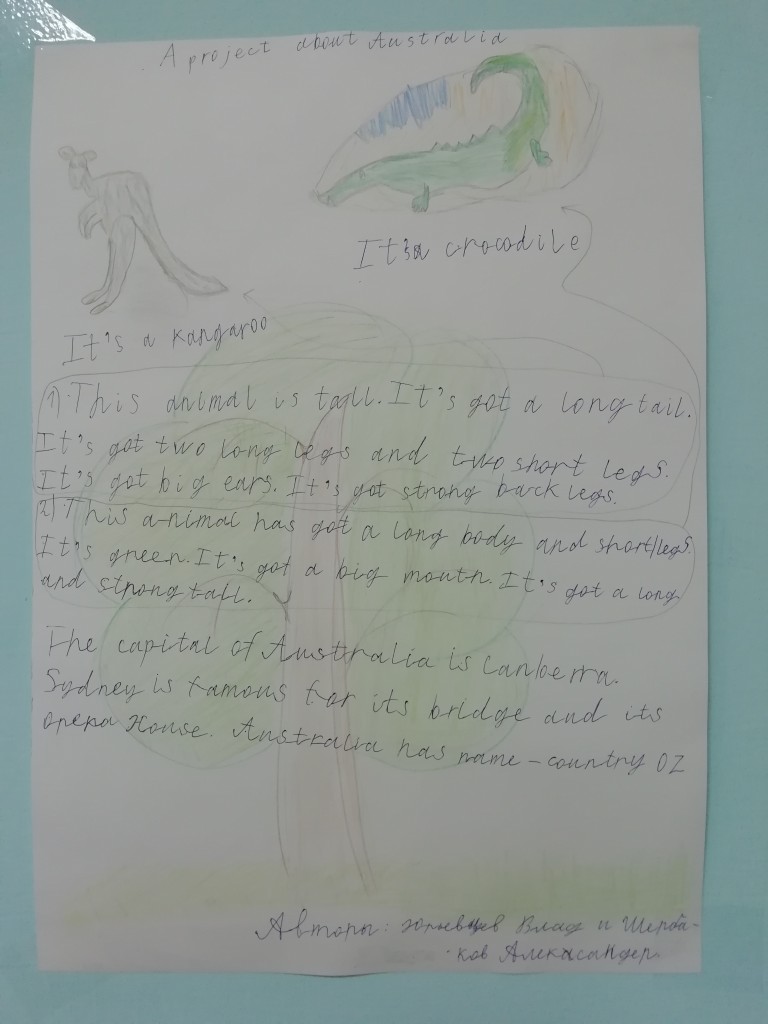 A project about Australia
It's a crocodile
It's a kangaroo
1) This animal is tall. It's got a long tail.
It's got two long legs and two short legs.
It's got big ears. It's got strong back legs.
2) This animal has got a long body and short legs.
It's green. It's got a big mouth. It's got a long
and strong tail.
The capital of Australia is Canberra.
Sydney is famous for its bridge and its
opera House. Australia has name - country OZ
Авторы: Влад и Щерба-
ков Александер.